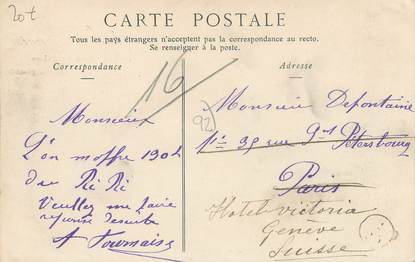 20 t
CARTE POSTALE
Tous les pays étrangers n'acceptent pas la correspondance au recto.
Se renseigner à la poste.
Correspondance
16
Monsieur
L'on m'offre 190 h
du Ri Ri
Veuillez me faire
reponse de suite
92
Adresse
Monsieur Defontaine
35 rue St Pétersbourg
Paris
Hotel Victoria
Genève
Suisse